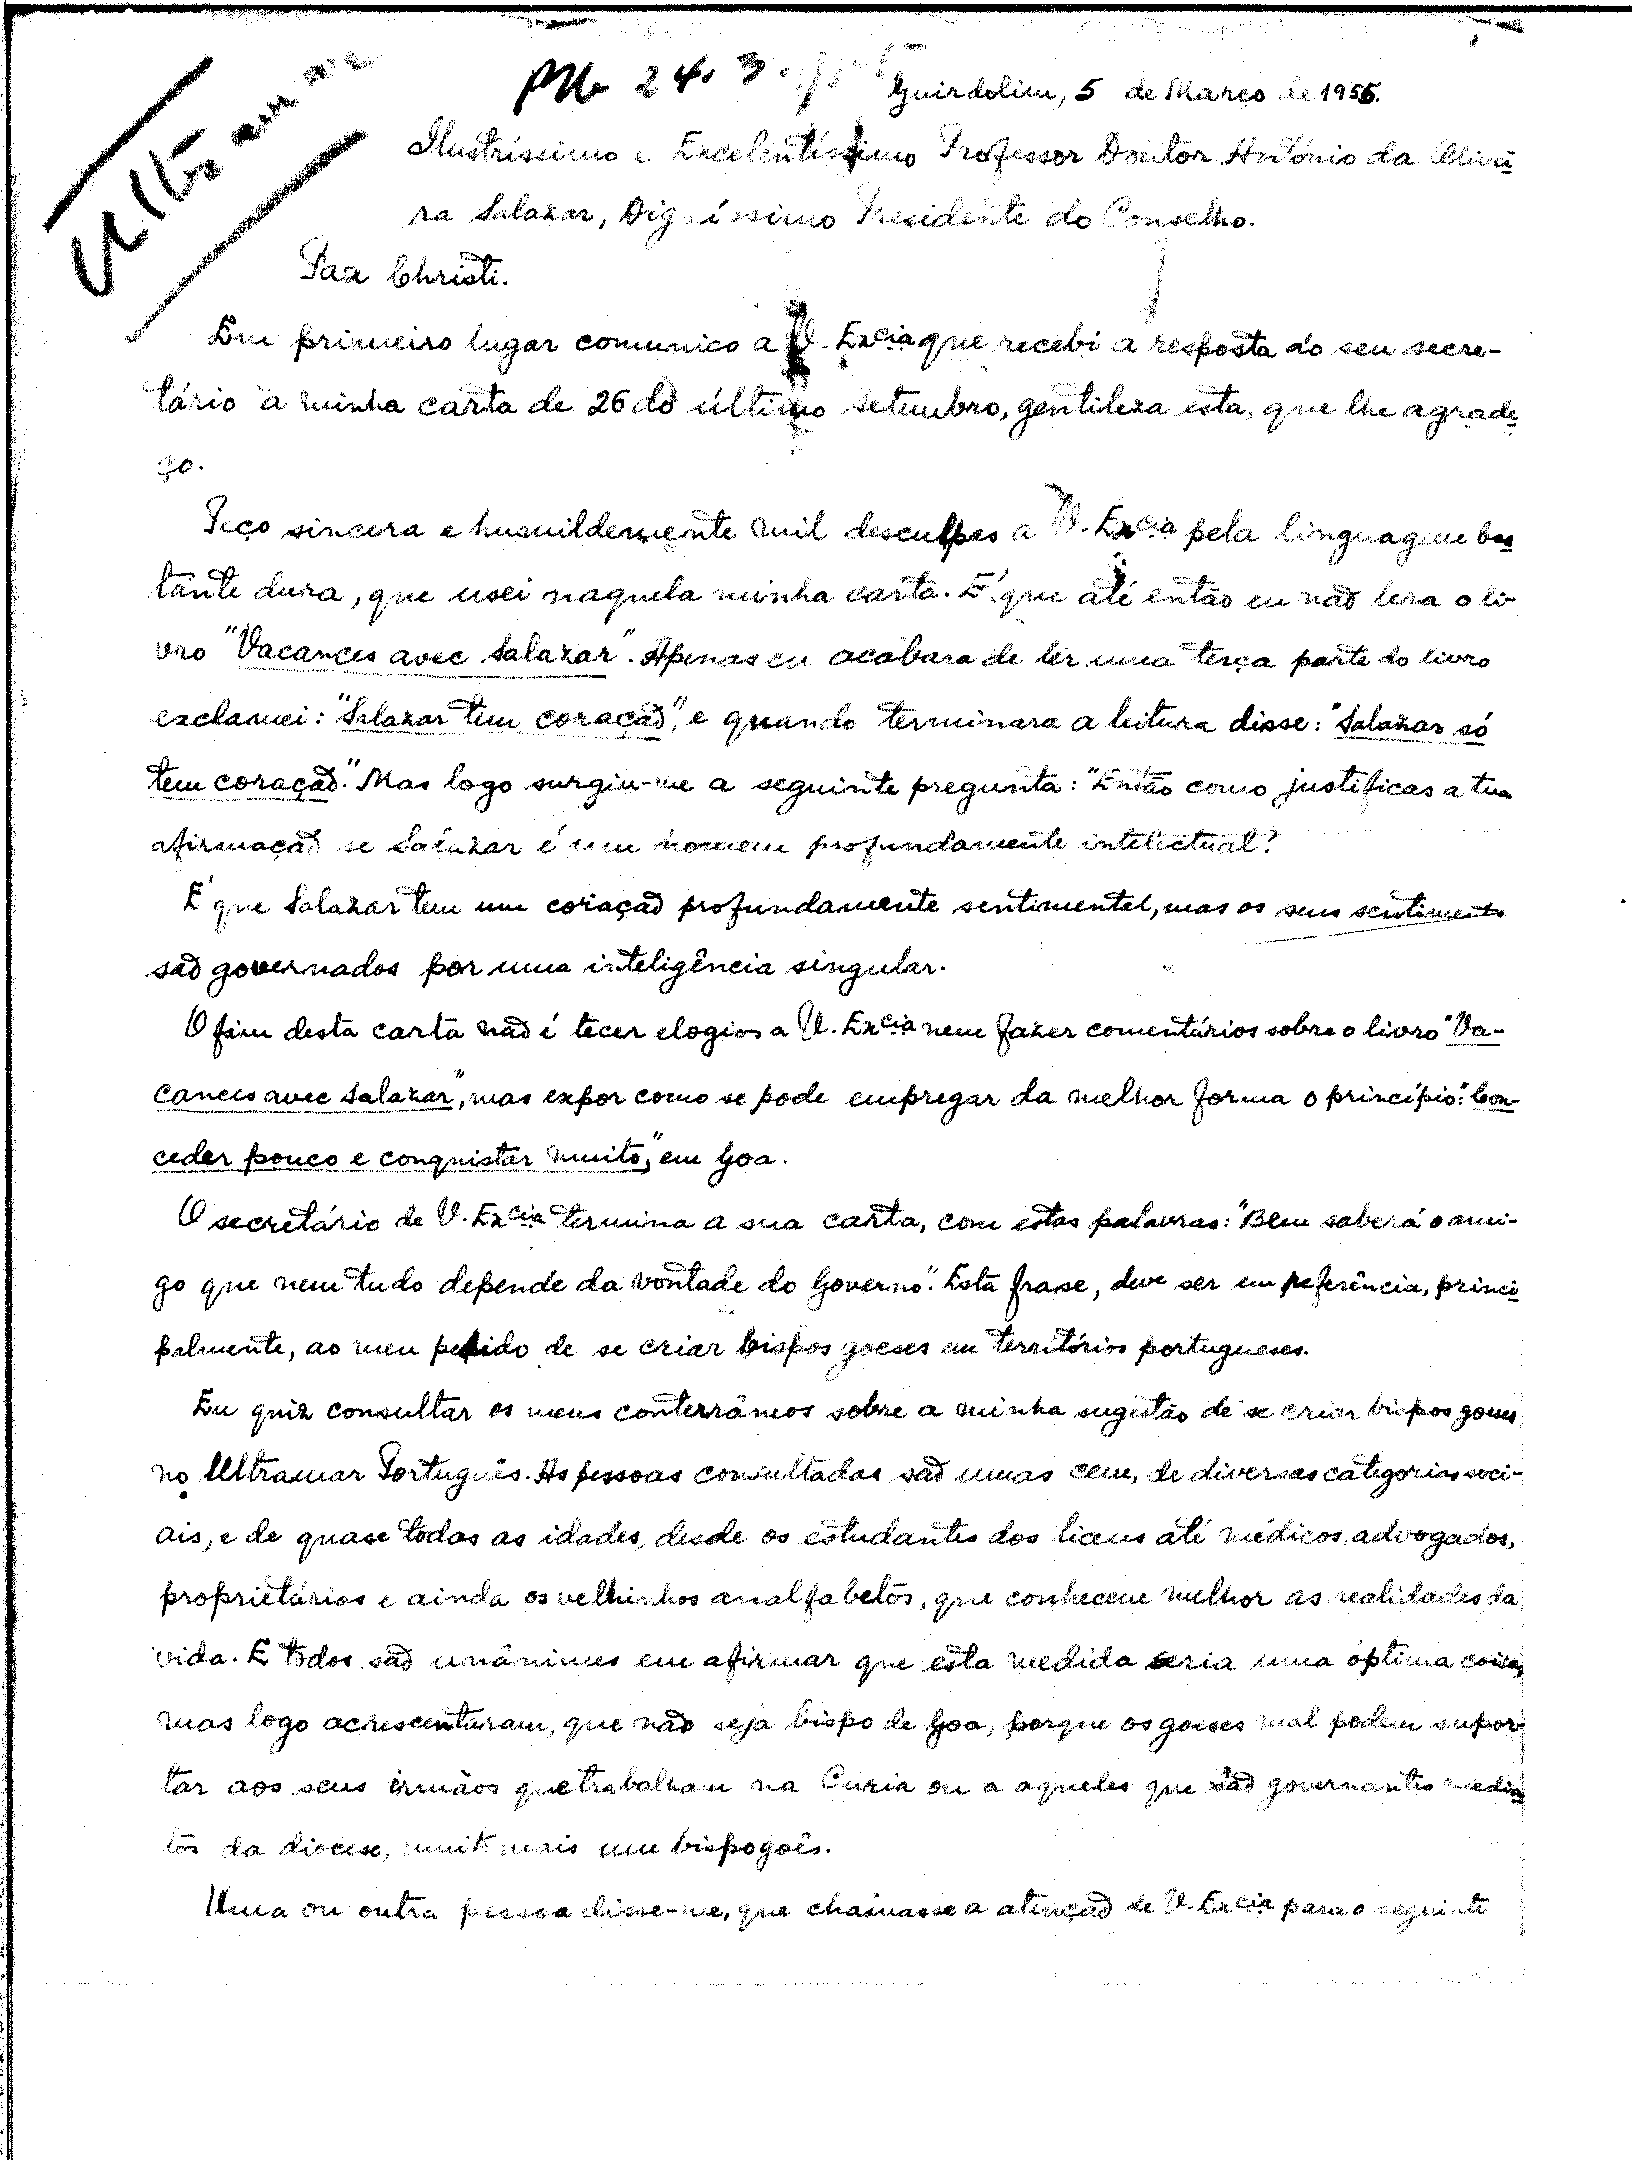 Ultramar
24. 3.
Guirdolim, 5 de Março de 1956.
Ilustríssimo e Excelentíssimo Professor Doutor António da Olivei
ra Salazar, Digníssimo Presidente do Conselho.
Pax Christi.
Em primeiro lugar comunico a V. Excia que recebi a resposta do seu secre-
tário à minha carta de 26 do último setembro, gentileza esta, que lhe agrade
ço.
Peço sincera e humildemente mil desculpas a V. Excia pela linguagem bas
tante dura, que usei naquela minha carta. É que até então eu não lera o li-
vro "Vacances avec Salazar". Apenas eu acabara de ler uma terça parte do livro
exclamei: "Salazar tem coração", e quando terminara a leitura disse: "Salazar só
tem coração." Mas logo surgiu-me a seguinte pregunta: "Então como justificas a tua
afirmação se Salazar é um homem profundamente intelectual?
É que Salazar tem um coração profundamente sentimental, mas os seus sentimentos
são governados por uma inteligência singular.
O fim desta carta não é tecer elogios a V. Excia nem fazer comentários sobre o livro "Va-
cances avec Salazar", mas expor como se pode empregar da melhor forma o princípio: "Con-
ceder pouco e conquistar muito", em Goa.
O secretário de V. Excia termina a sua carta, com estas palavras: "Bem saberá o ami-
go que nem tudo depende da vontade do Governo". Esta frase, deve ser em referência, princi
palmente, ao meu pedido de se criar bispos goeses em territórios portugueses.
Eu quiz consultar os meus conterrâneos sobre a minha sugestão de se criar bispos goeses
no Ultramar Português. As pessoas consultadas são umas cem, de diversas categorias soci-
ais, e de quase todas as idades, desde os estudantes dos liceus até médicos, advogados,
proprietários e ainda os velhinhos analfabetos, que conhecem melhor as realidades da
vida. E todos são unânimes em afirmar que esta medida seria uma óptima coisa,
mas logo acrescentaram, que não seja bispo de Goa, porque os goeses mal podem supor
tar aos seus irmãos que trabalham na Curia ou a aqueles que são governantes media
tos da diocese, muito mais um bispo goês.
Uma ou outra pessoa disse-me, que chamasse a atenção de V. Excia para o seguinte